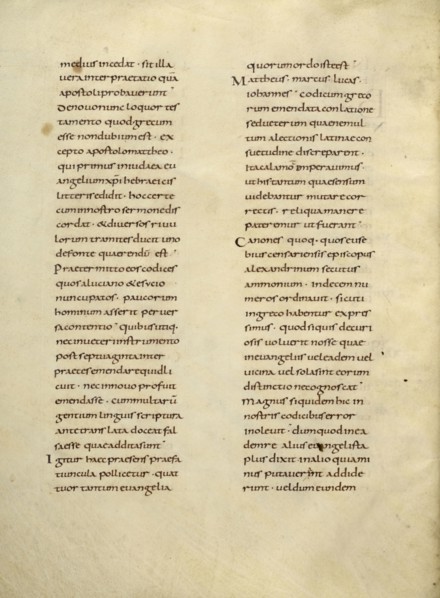 medius incedat · sit illa
vera interpraetatio quā
apostoli probaverunt
De novo nunc loquor tes
tamento quod grecum
esse non dubium est · ex
cepto apostolo mattheo ·
qui primus in iudaea eu
angelium xp̄i hebraeicis
litteris edidit · hoc certe
cum in nostro sermone dis
cordat · & diversos rivu
lorum tramites ducit uno
de fonte quaerendū est
Praetermitto eos codices
quos a luciano & esycio
nuncupatos · paucorum
hominum asserit perver
sa contentio · quibus utiq·
nec in veteri instrumento
post septuaginta inter
praetes emendare quid li
cuit · nec in novo profuit
emendasse · cum multarū
gentium linguis scriptura
ante translata doceat fal
sa esse quae addita sunt
Igitur haec praesens praefa
tiuncula pollicetur · quat
tuor tantum evangelia
quorum ordo iste est
Mattheus · marcus · lucas ·
iohannes · codicum greco
rum emendata conlatione
sed veterum quae ne mul
tum a lectionis latinae con
suetudine discreparent ·
Ita calamo imperavimus ·
ut his tantum quae sensum
videbantur mutare cor
rectis · reliqua manere
pateremur ut fuerant
Canones quoq· quos euse
bius censariensis episcopus
alexandrinum secutus
ammonium · in decem nu
meros ordinavit · sicuti
in greco habentur expres
simus · quod si quis de curi
osis voluerit nosse quae
in evangeliis vel eadem vel
vicina vel sola sint eorum
distinctione cognoscat
Magnus siquidem hic in
nostris codicibus error
inolevit · dum quod in ea
dem re alius evangelista
plus dixit in alio quia mi
nus putaver̄nt addide
runt · vel dum eundem